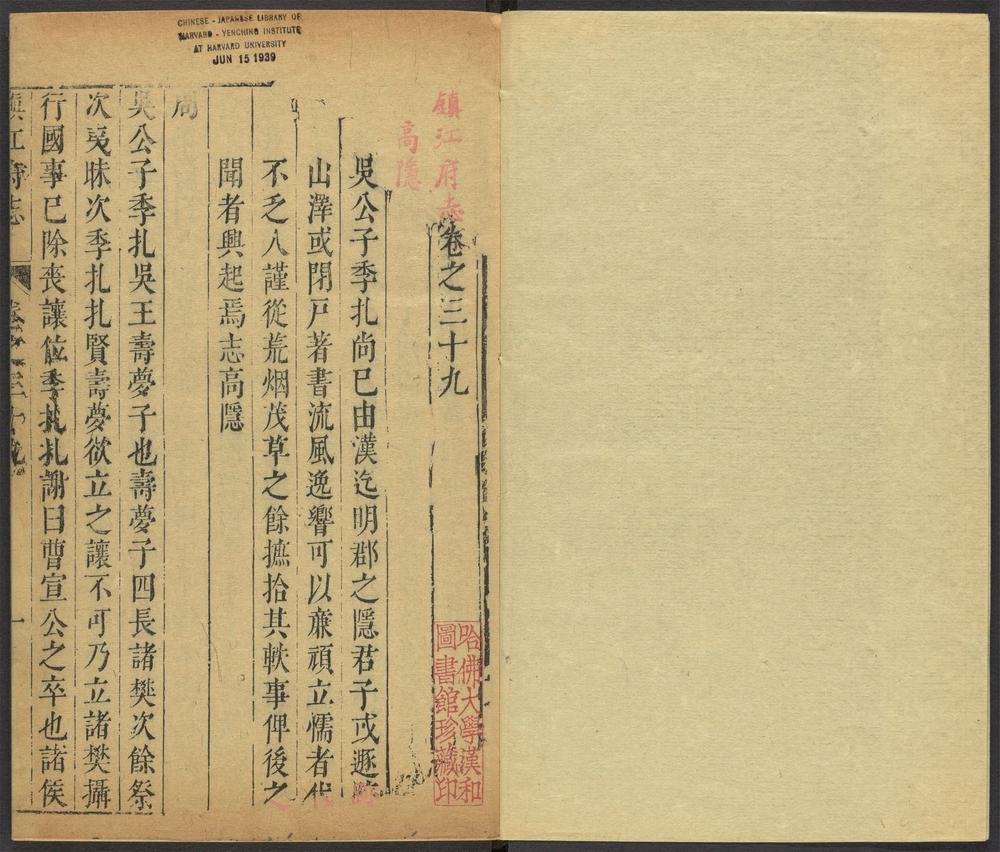 CHINESE - JAPANESE LIBRARY OF
HARVARD - YENCHING INSTITUTE
AT HARVARD UNIVERSITY
JUN 15 1939
鎮江府志卷之三十九
高隱
吳公子季扎尚已由漢迄明郡之隱君子或遯跡
山澤或閉戸著書流風逸響可以亷頑立懦者代
不乏人謹從荒烟茂草之餘摭拾其軼事俾後之
聞者興起焉志高隱
周
吳公子季扎吳王壽夢子也壽夢子四長諸樊次餘祭
次夷昧次季扎扎賢壽夢欲立之讓不可乃立諸樊攝
行國事已除喪讓位季扎扎謝曰曹宣公之卒也諸侯
鎮江府志
卷之三十九
一
哈佛大學漢和
圖書館珍藏印